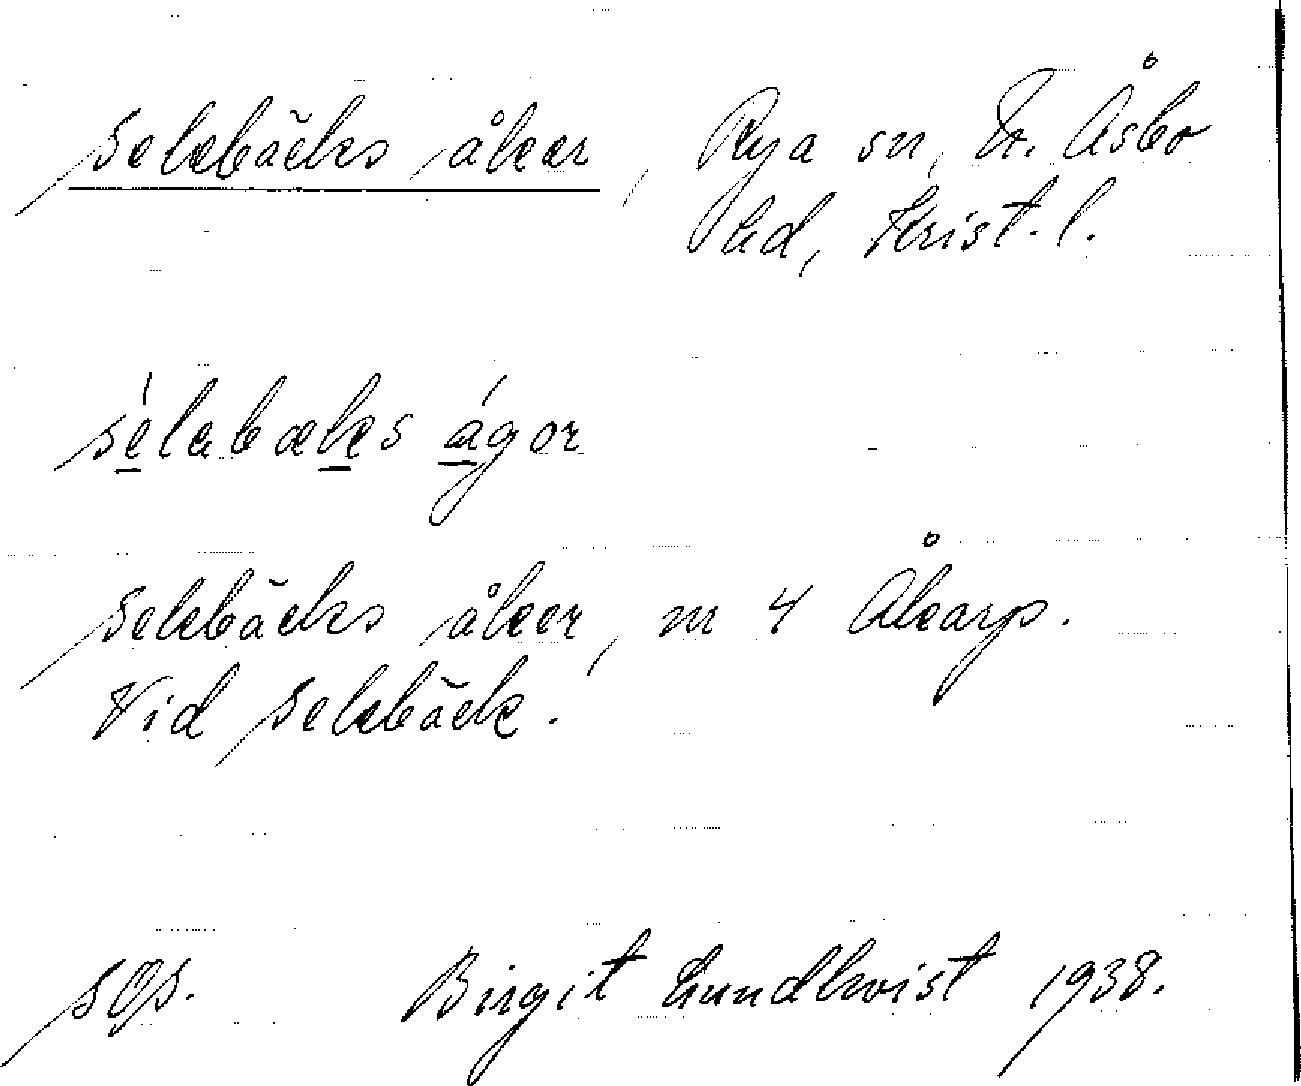 Selebäcks åker, Rya sn, N. Åsbo
hd, Krist. l.
sélabæks ágor
Selebäcks åker, nr 4 Åkarp.
Vid Selebäck.
Birgit Lundkvist 1938.